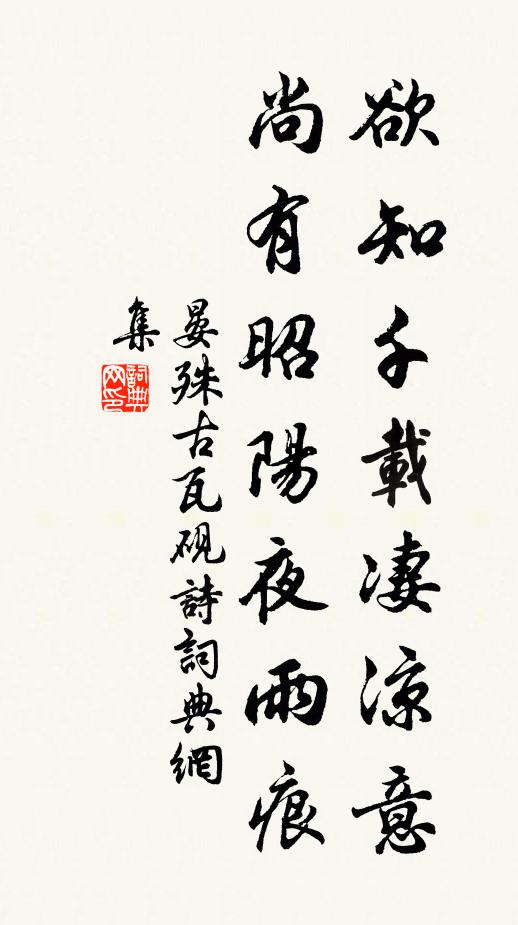 欲知千載淒涼意
尚有昭陽夜雨痕
晏殊古瓦硯詩詞典網
集
詞典網印